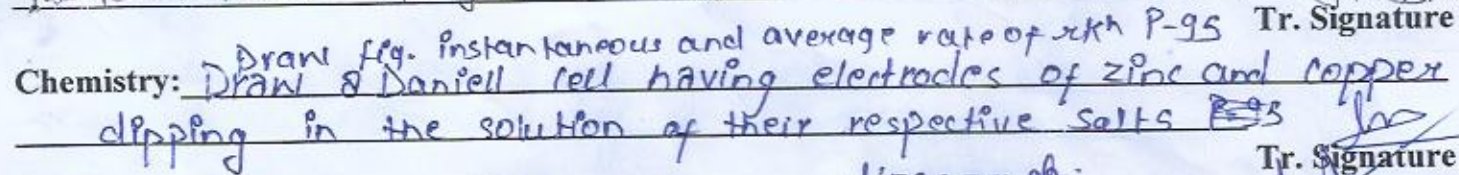 Tr. Signature
Draw fig. instantaneous and average rate of rxn P-95
Chemistry: Draw a Daniell cell having electrodes of zinc and copper
dipping in the solution of their respective salts
Tr. Signature